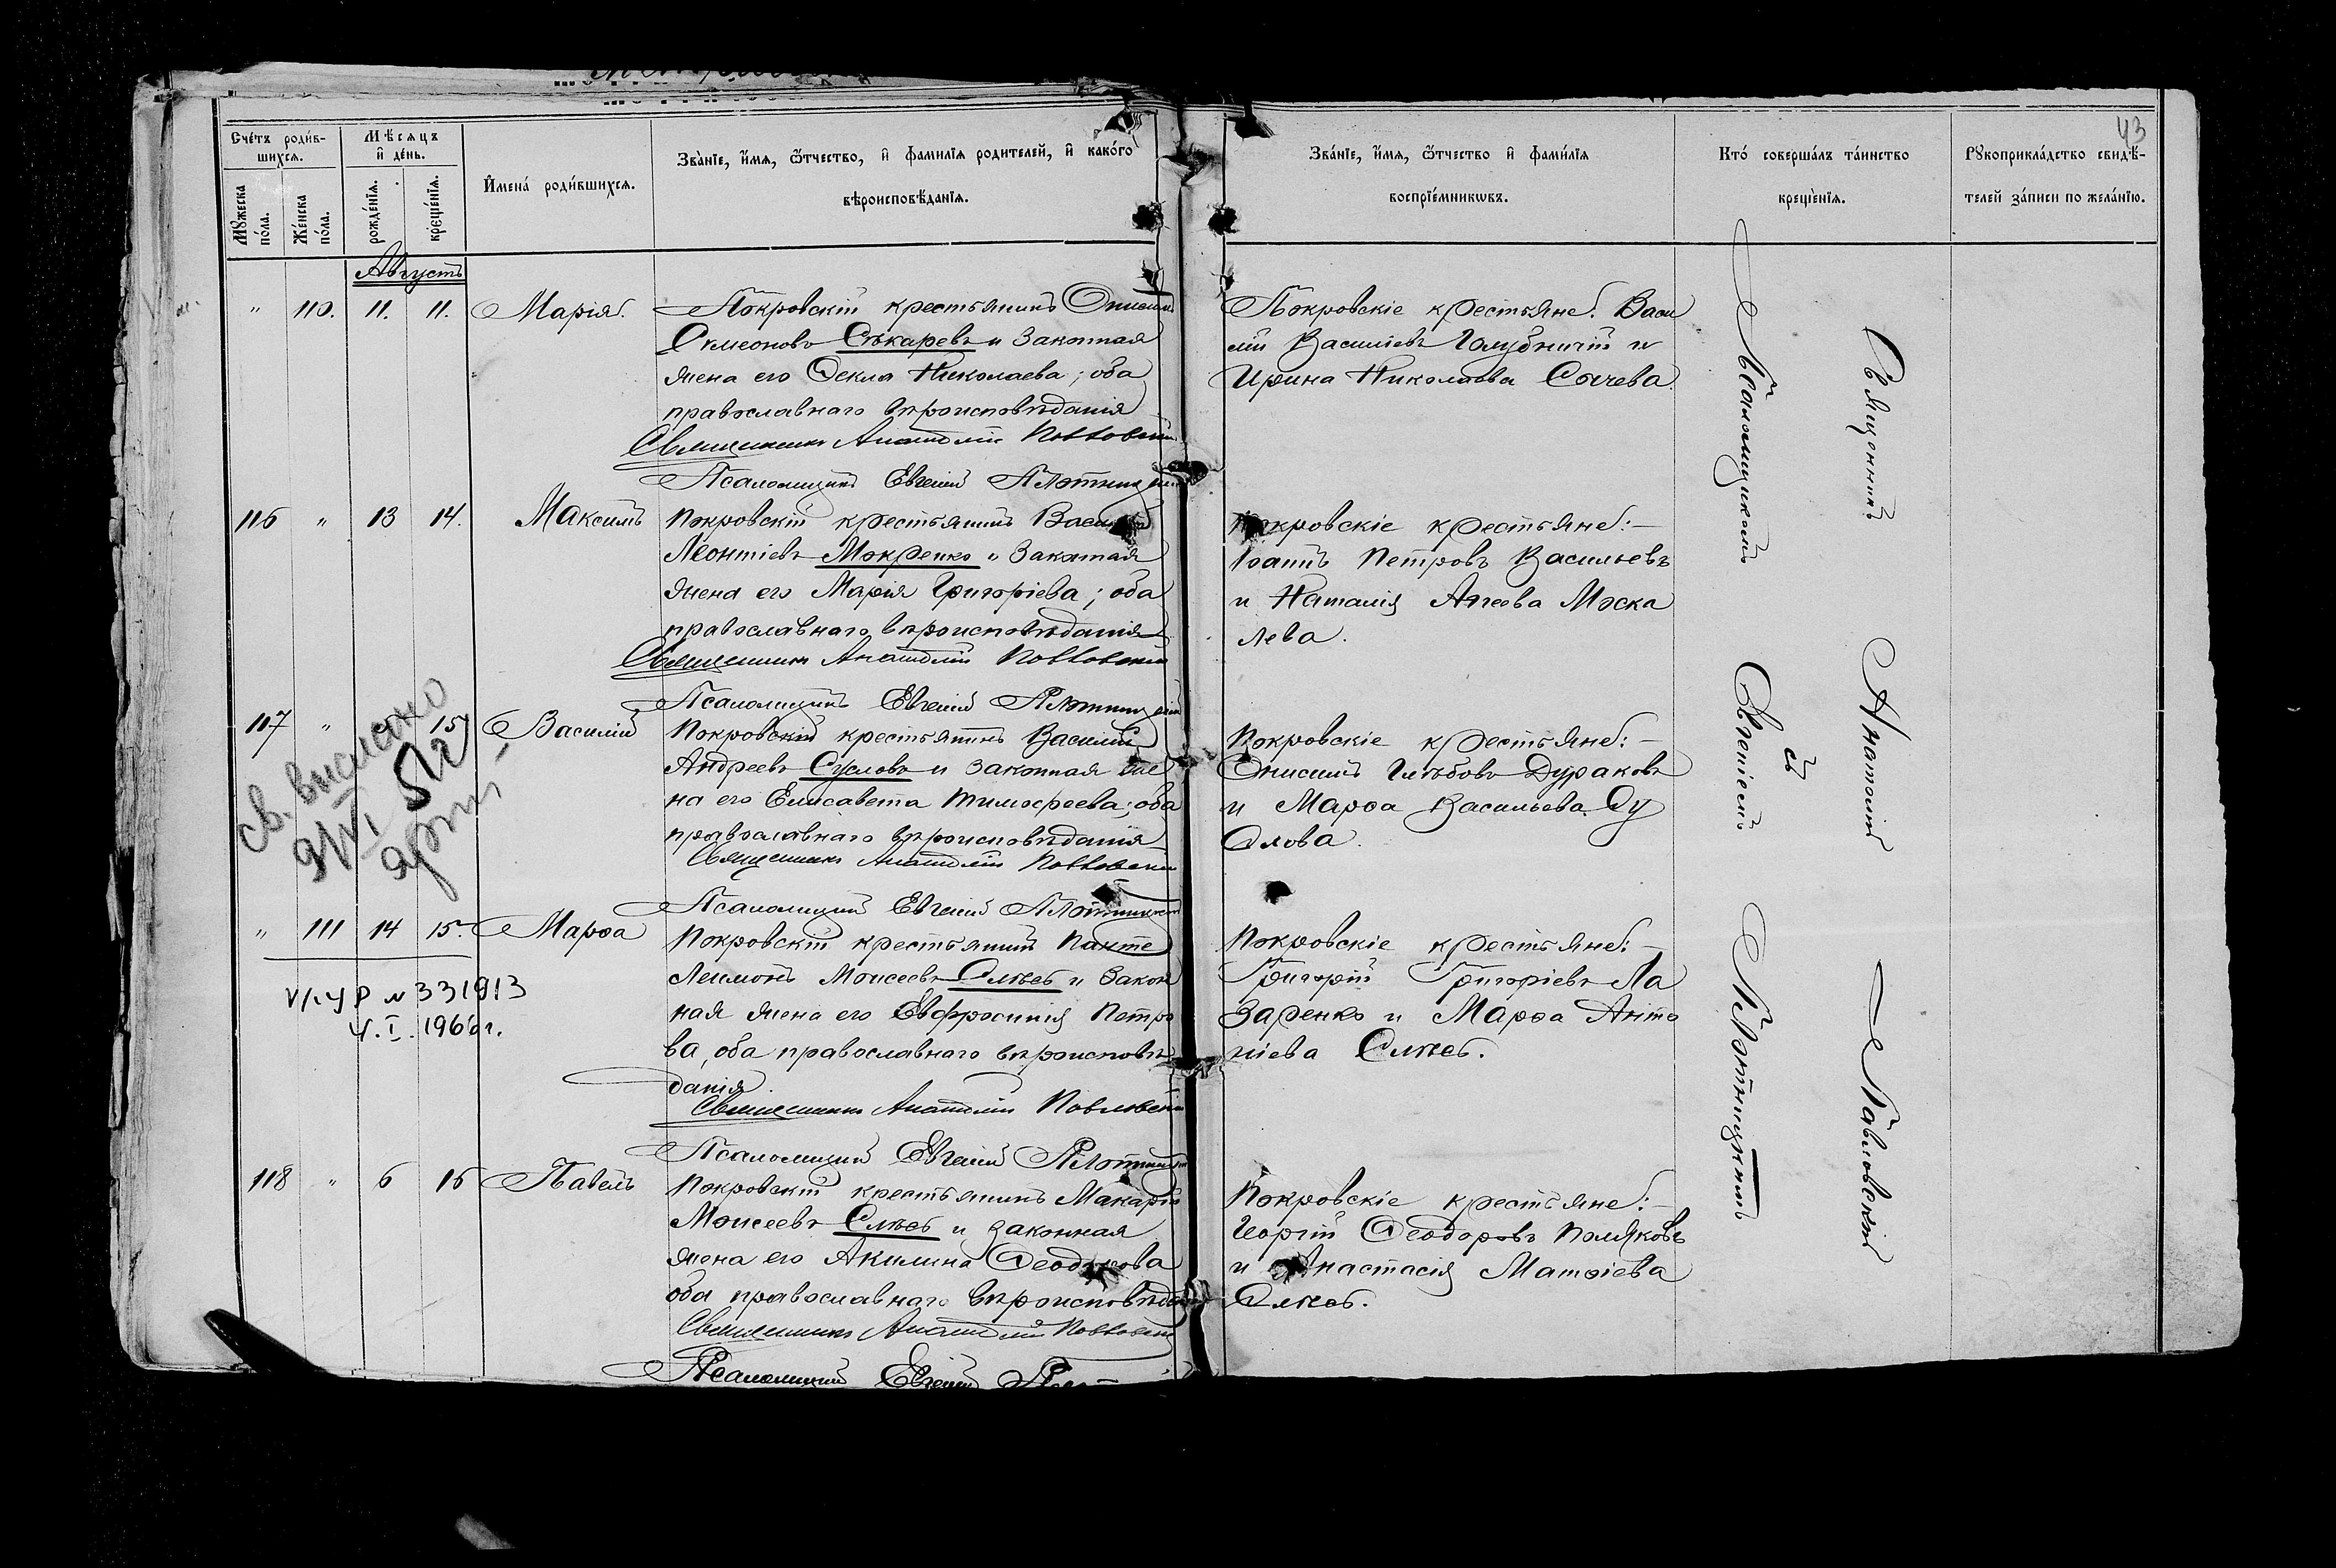 43
Счéтъ роди́в-
шихсѧ.
Мѣсѧцъ
и҆ де́нь.
Мꙋжеска
по́ла.
Же́нска
по́ла.
рожде́нїѧ.
креще́нїѧ.
И҆мена́ роди́вшихсѧ.
Зва́нїе, и҆́мѧ, ѻ҆́тчество, и҆ фами́лїѧ родителей, и҆ како́гѡ
вѣроисповѣ́данїѧ.
Зва́нїе, и҆́мѧ, ѻ҆́тчество и҆ фами́лїѧ
воспрїе́мникѡвъ.
Кто́ соверша́лъ та́инство
креще́нїѧ.
Рꙋкоприкла́дство свидѣ́-
телей за́писи по жела́нїю.
Августъ
" 110. 11. 11. Марія.
Покровскій крестьянинъ Онисим
Симеоновъ Сѣкаревъ и законная
жена его Ѳекла Николаева; оба
православнаго вѣроисповѣданія
Священникъ Анатолій Павловскій
Псаломщикъ Евгеній Плотницкій
Покровскіе крестьяне: Васи
лій Васильевъ Голубничій и
Ирина Николаева Сычева.
116 " 13 14. Максимъ
Покровскій крестьянинъ Василій
Леонтіевъ Мокренко и законная
жена его Марія Григоріева; оба
православнаго вѣроисповѣданія
Священникъ Анатолій Павловскій
Псаломщикъ Евгеній Плотницкій
Покровскіе крестьяне:—
Іоаннъ Петровъ Васильевъ
и Наталія Агеева Моска
лева.
117 " 15 Василій
Покровскій крестьянинъ Василій
Андреевъ Сусловъ и законная же
на его Елисавета Тимофеева; оба
православнаго вѣроисповѣданія
Священникъ Анатолій Павловскій
Псаломщикъ Евгеній Плотницкій
Покровскіе крестьяне:—
Онисимъ Глѣбовъ Дураковъ
и Марѳа Васильева Су
слова.
св. выслано
" 111 14 15. Марѳа
Покровскій крестьянинъ Панте
леимонъ Моисеевъ Слѣсь и закон
ная жена его Евфросинія Петро
ва, оба православнаго вѣроисповѣ
данія.
Священникъ Анатолій Павловскій
Псаломщикъ Евгеній Плотницкій
Покровскіе крестьяне:—
Григорій Григоріевъ Ла
заренко и Марѳа Анто
ніева Слѣсь.
№ 331913
4.I.1966г.
118 " 6 16 Павелъ
Покровскій крестьянинъ Макарій
Моисеевъ Слѣсь и законная
жена его Акилина Ѳеодорова
оба православнаго вѣроисповѣда
Священникъ Анатолій Павловскій
Псаломщикъ Евгеній
Покровскіе крестьяне:—
Георгій Ѳеодоровъ Поляковъ
и Анастасія Матѳіева
Слѣсь.
Священникъ Анатолій Павловскій
съ
Псаломщикомъ Евгеніемъ Плотницкимъ